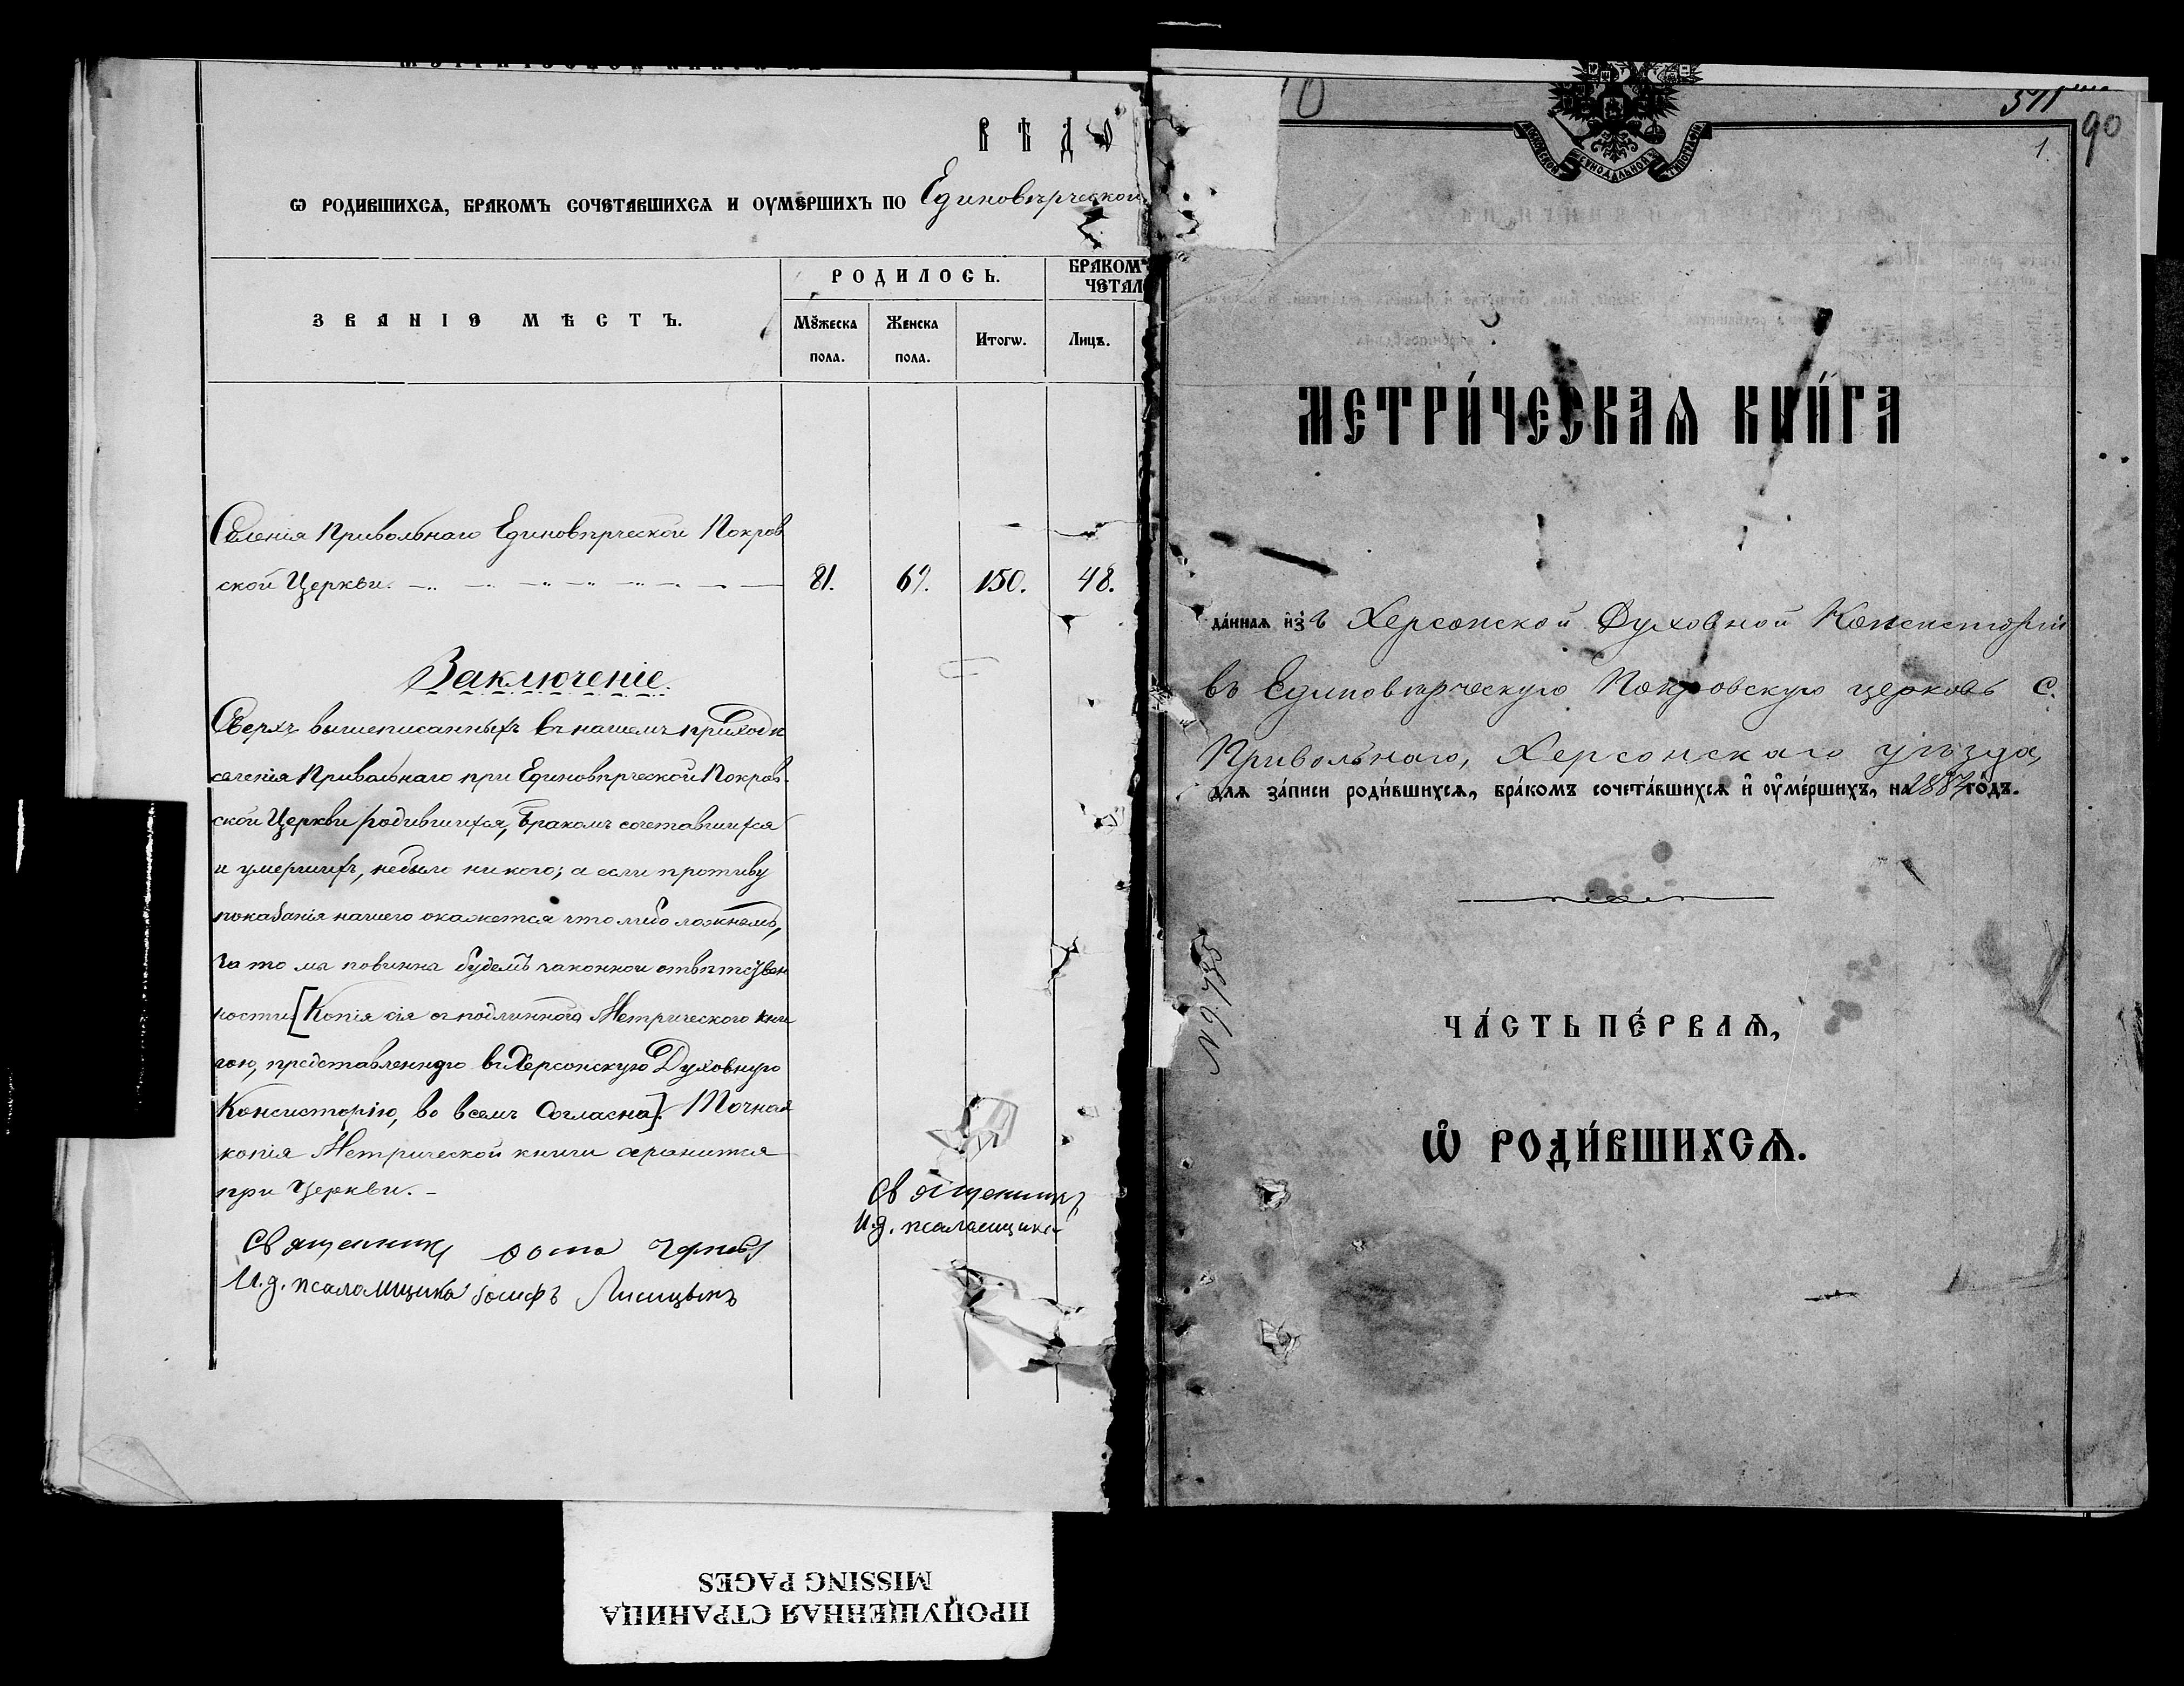 ВѢДО
Ѡ РОДИВШИХСѦ, БРАКОМЪ СОЧЕТАВШИХСѦ И ОУМЕРШИХЪ ПО Единовѣрческой
ЗВАНІЕ МѢСТЪ.
РОДИЛОСЬ.
БРАКОМЪ
ЧЕТАЛ
Мꙋжеска
пола.
Женска
пола.
Итогѡ.
Лицъ.
Селенія Привольнаго Единовѣрческой Покров
ской Церкви.
81. 69. 150. 48.
Заключеніе.
Сверхъ вышеписанныхъ въ нашемъ приходѣ
селенія Привольнаго при Единовѣрческой Покров-
ской Церкви родившихся, бракомъ сочетавшихся
и умершихъ, небыло никого; а если противу
показанія нашего окажется что либо ложнымъ,
за то мы повинны будемъ законной отвѣтствен
ности [Копія сія съ подлинною Метрическою кни
гою, представленною въ Херсонскую Духовную
Консисторію, во всемъ согласна]. Точная
копія Метрической книги хранится
при Церкви. -
Священникъ
И.д. псаломщика
Священникъ Ѳома
И.д. псаломщика Іосифъ Лисицынъ
ПРОПУЩЕННАЯ СТРАНИЦА
MISSING PAGES
571
90
1.
МОСКОВСКОЙ СѴНОДАЛЬНОЙ ТИПОГРАФІИ
МЕТРИ́ЧЕСКАѦ КНИ́ГА
да́ннаѧ и҆зъ Херсонской Духовной Консисторіи
въ Единовѣрческую Покровскую церковь с.
Привольнаго, Херсонскаго уѣзда,
длѧ за́писи роди́вшихсѧ, бра́комъ сочета́вшихсѧ и҆ оу҆ме́ршихъ, на 1887 го́дъ.
ЧА́СТЬ ПЕ́РВАѦ,
Ѡ҆ РОДИ́ВШИХСѦ.